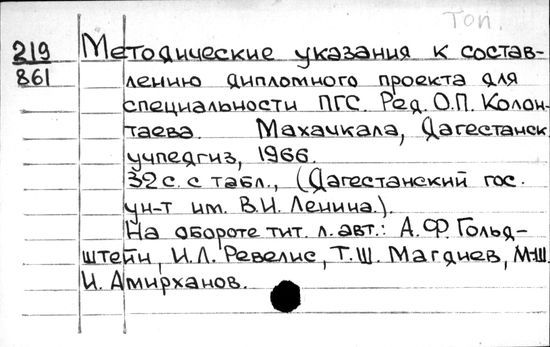 Топ.
219 Методические указания к состав-
861 лению дипломного проекта для
специальности ПГС. Ред. О.П. Колон-
таева. Махачкала, Дагестанск.
учпедгиз, 1966.
32 с. с табл., (Дагестанский гос.
ун-т им. В.И. Ленина.).
На обороте тит. л. авт.: А.Ф. Гольд-
штейн, И.Л. Ревелис, Т.Ш. Магдиев, М-Ш.
И. Амирханов.